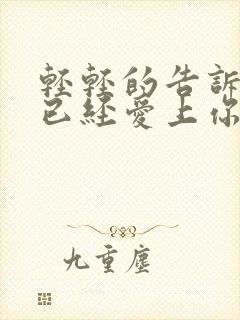 輕輕的告訴
已經愛上你
九重塵